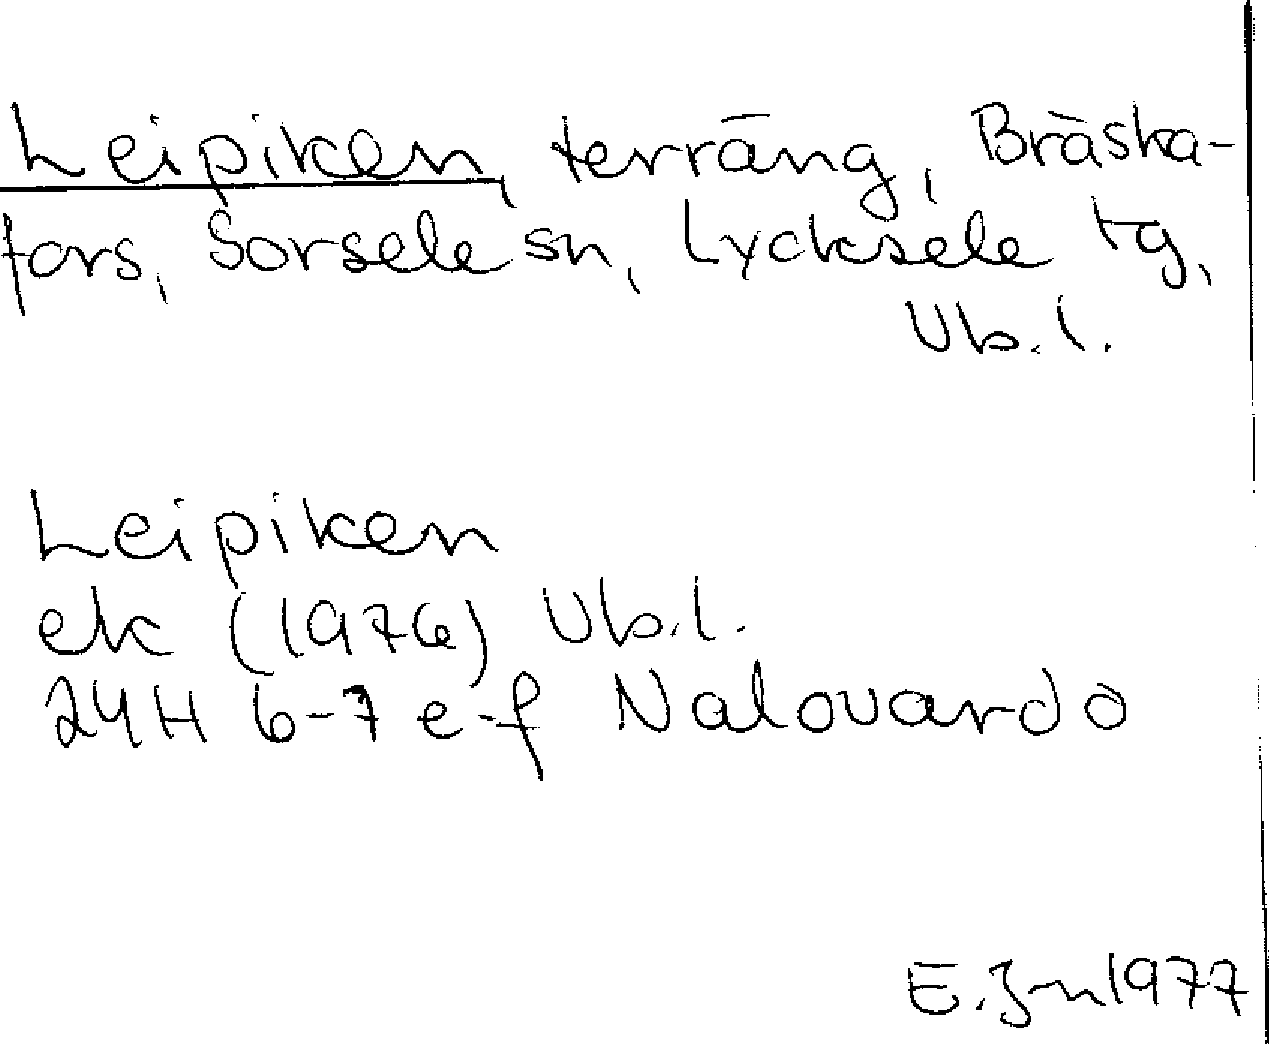 Leipiken, terräng, Bräska-
fors, Sorsele sn, Lycksele tg,
Vb. l.
Leipiken
ek (1976) Vb. l.
24H 6-7 e-f Nalovardo
E. Jn 1977